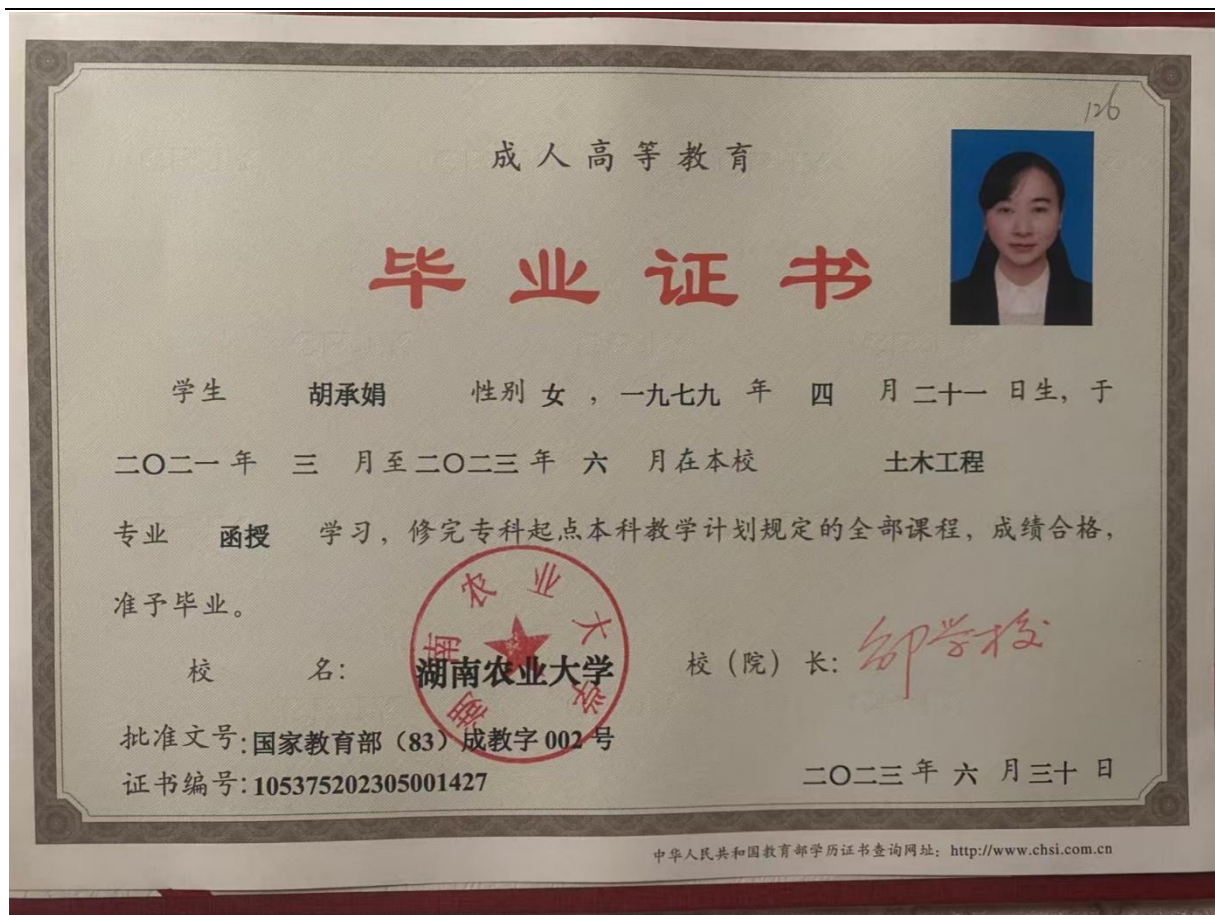 126
成人高等教育
毕业证书
学生 胡承娟 性别 女 ，一九七九 年 四 月 二十一 日生，于
二〇二一 年 三 月至 二〇二三 年 六 月在本校 土木工程
专业 函授 学习，修完专科起点本科教学计划规定的全部课程，成绩合格，
准予毕业。
校 名： 湖南农业大学 校（院）长：邹学校
湖南农业大学
批准文号:国家教育部（83）成教字 002 号
证书编号:105375202305001427
二〇二三 年 六 月 三十 日
中华人民共和国教育部学历证书查询网址：http://www.chsi.com.cn